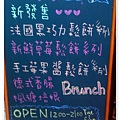 新發售
法國黑巧力鬆餅系列
新鮮草莓鬆餅系列
手工莓果醬鬆餅系列
德式香腸
Brunch
OPEN 12:00~21:00